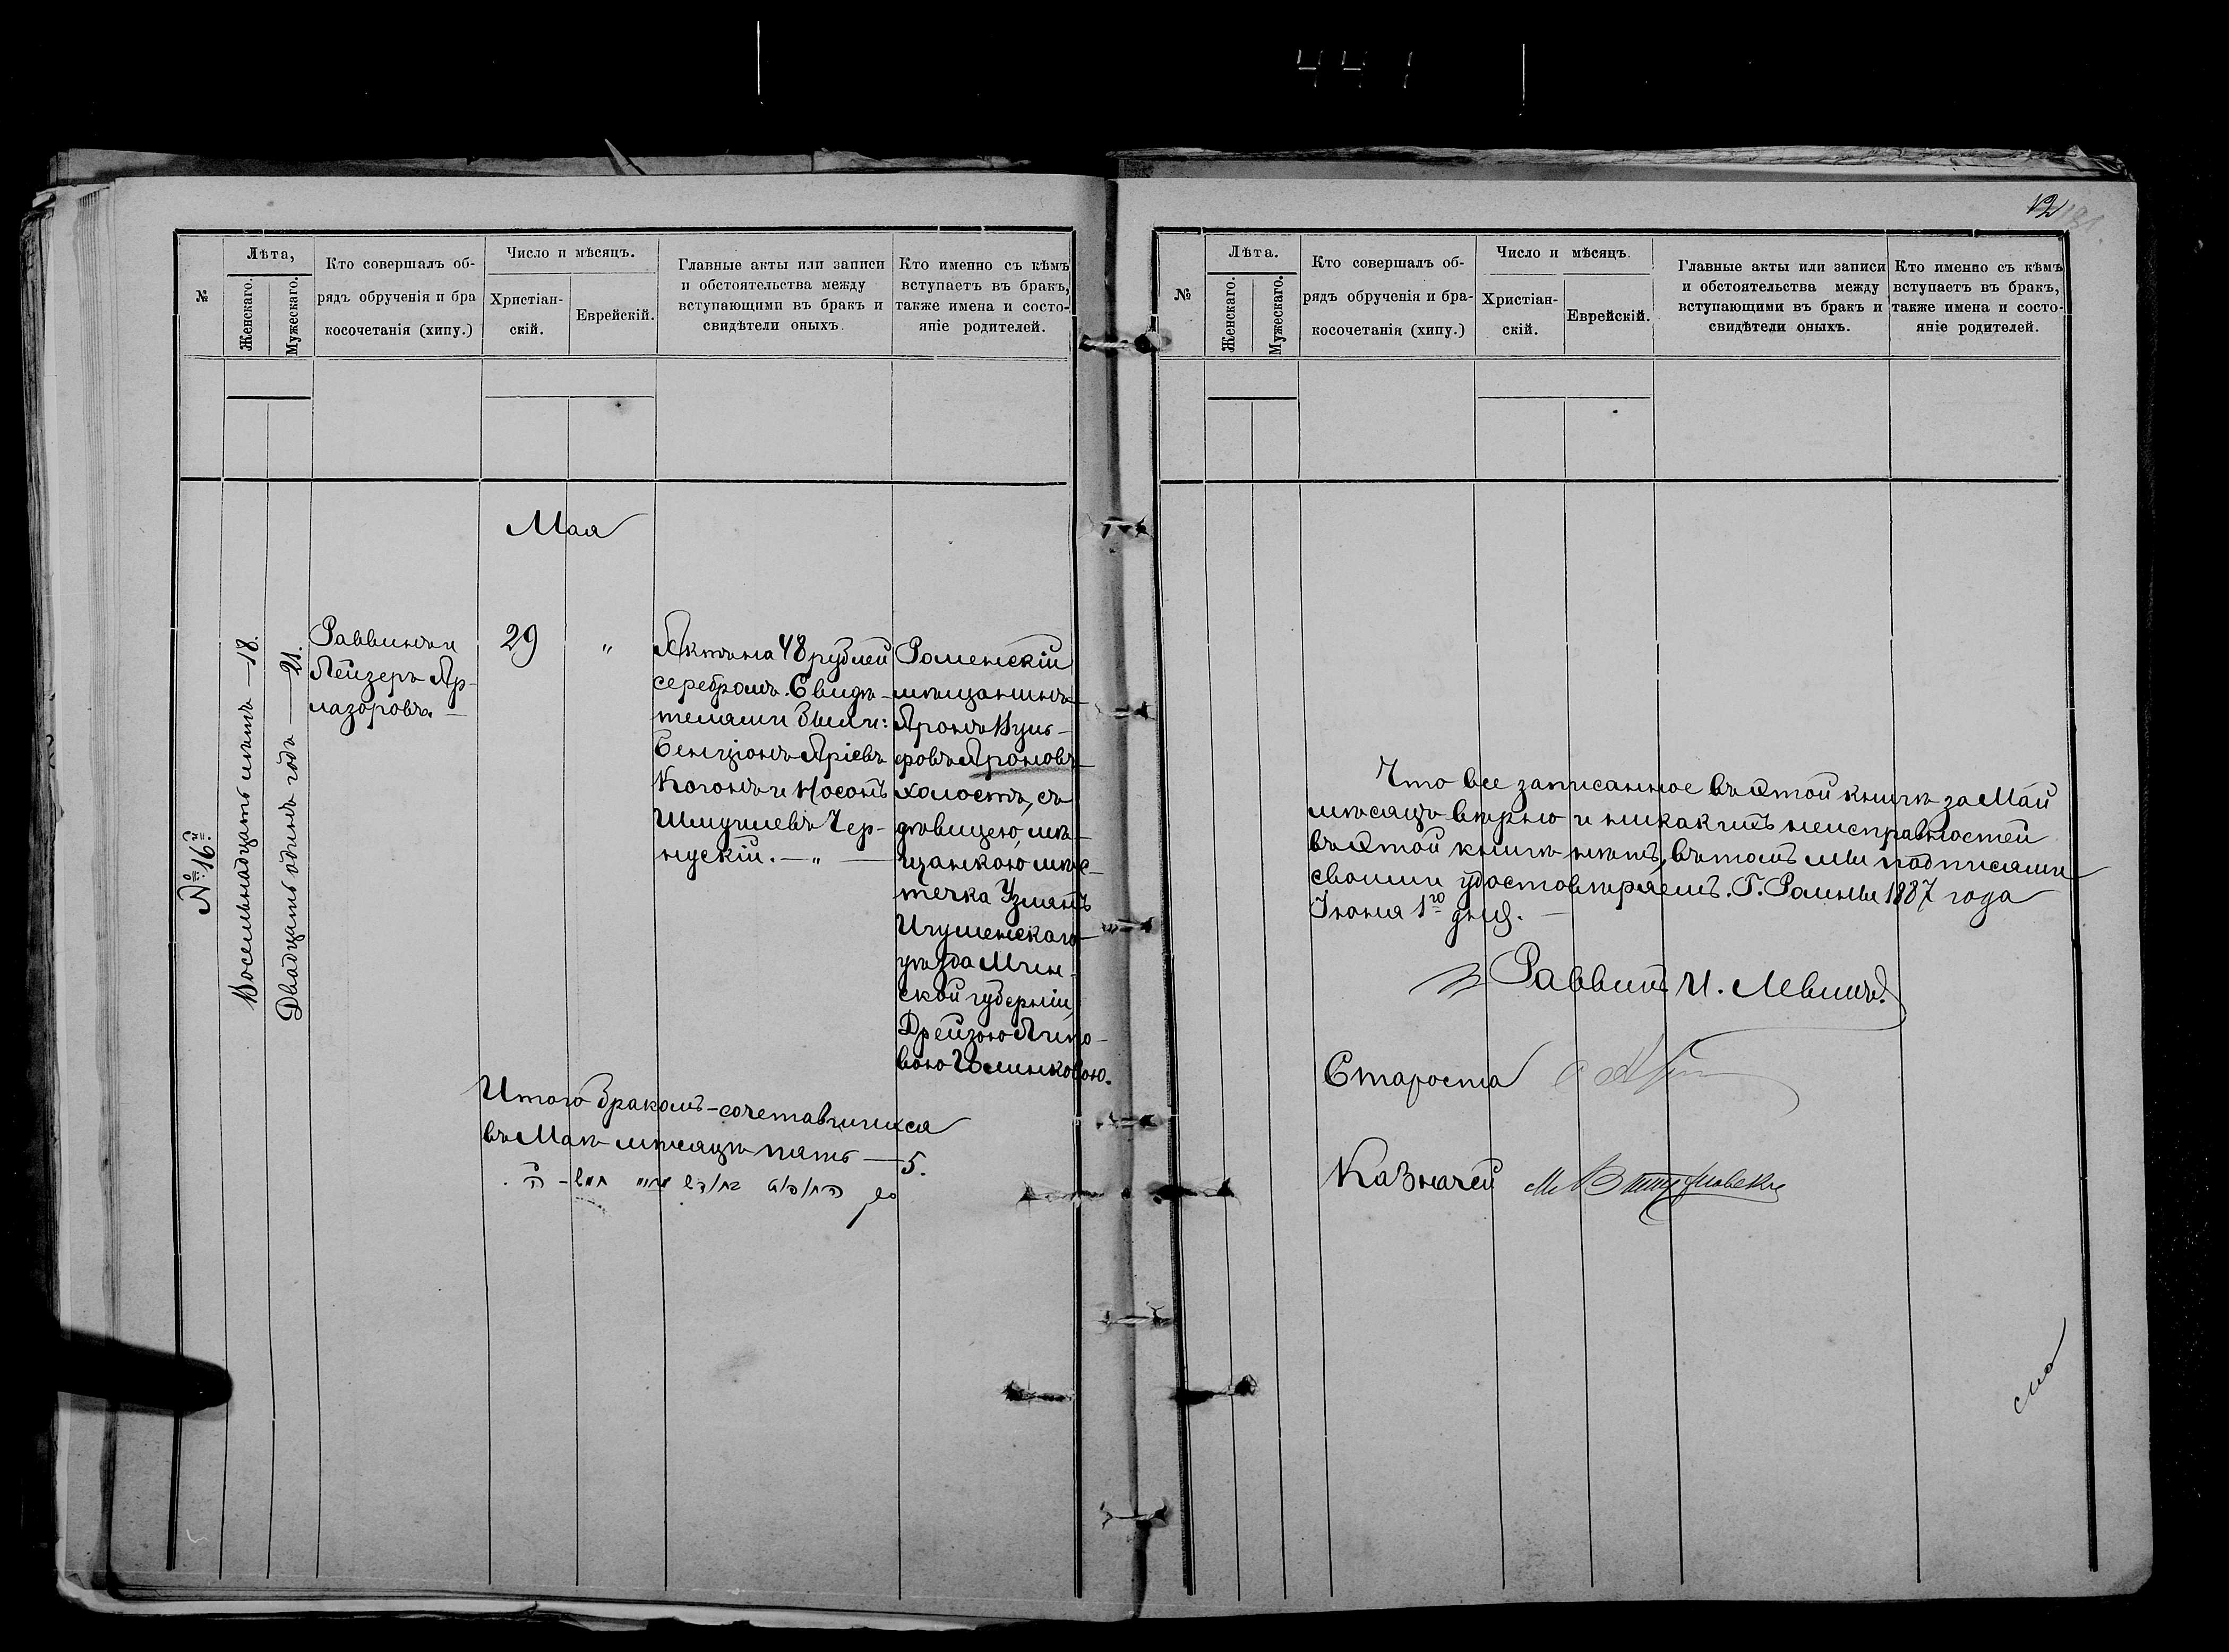 441
№
Лѣта,
Женскаго.
Мужескаго.
Кто совершалъ об-
рядъ обрученія и бра
косочетанія (хипу.)
Число и мѣсяцъ.
Христіан-
скій.
Еврейскій.
Главные акты или записи
и обстоятельства между
вступающими въ бракъ и
свидѣтели оныхъ.
Кто именно съ кѣмъ
вступаетъ въ бракъ,
также имена и состо-
яніе родителей.
Мая
№ 16й
Восемьнадцать лѣтъ — 18.
Двадцать одинъ годъ — 21.
Раввинъ и
Лейзеръ Яр-
лазоровъ. —
29
"
Актъ на 48 рублей
серебромъ. Свидѣ-
телями были:
Бенціонъ Аріевъ
Когонъ и Носонъ
Шмуилевъ Чер-
нускій. — " —
Роменскій
мѣщанинъ
Аронъ Вуль-
фовъ Ароновъ
холостъ, съ
дѣвицею, мѣ-
щанкою мѣс-
течка Узлянъ
Игуменскаго
уѣзда Мин-
ской губерніи,
Дрейзою
вою
Итого бракомъ-сочетавшихся
въ Маѣ мѣсяцѣ пять — 5.
12
№
Лѣта.
Женскаго.
Мужескаго.
Кто совершалъ об-
рядъ обрученія и бра-
косочетанія (хипу.)
Число и мѣсяцъ.
Христіан-
скій.
Еврейскій.
Главные акты или записи
и обстоятельства между
вступающими въ бракъ и
свидѣтели оныхъ.
Кто именно съ кѣмъ
вступаетъ въ бракъ,
также имена и состо-
яніе родителей.
Что все записанное въ этой книгѣ за Май
мѣсяцъ вѣрно и никакихъ неисправностей
въ этой книгѣ нѣтъ, въ томъ мы подписями
своими удостовѣряемъ. Г. Ромны 1887 года
Іюня 1го дня. —
Раввинъ И. Левинъ.
Староста
Казначей